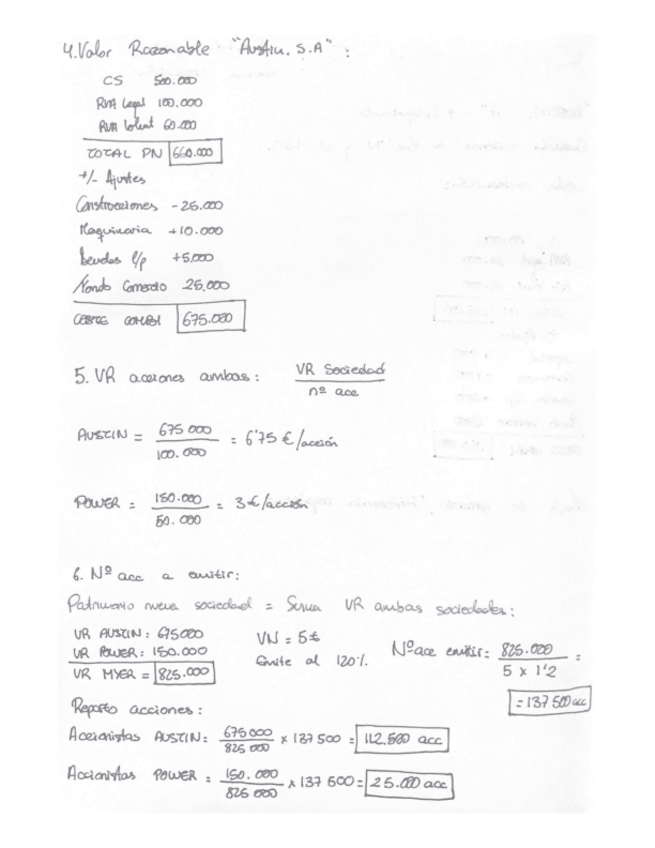 4. Valor Razonable "Austin. S.A" :
CS 500.000
RVA Legal 100.000
RVA Volunt 60.000
TOTAL PN 660.000
+/- Ajustes
Construcciones - 25.000
Maquinaria +10.000
Deudas l/p +5.000
Fondo Comercio 25.000
675.000
5. VR acciones ambas : VR Sociedad / nº acc
AUSTIN = 675 000 / 100.000 = 6'75 €/acción
POWER = 150.000 / 50.000 = 3 €/acción
6. Nº acc a emitir :
Patrimonio nueva sociedad = Suma VR ambas sociedades :
VR AUSTIN : 675000 VN = 5 € Nº acc emitir = 825.000 / 5 x 1'2 =
VR POWER : 150.000 Emite al 120%.
VR MYER = 825.000 = 137 500 acc
Reparto acciones :
Accionistas AUSTIN = 675 000 / 825 000 x 137 500 = 112.500 acc
Accionistas POWER = 150.000 / 825 000 x 137 500 = 25.000 acc